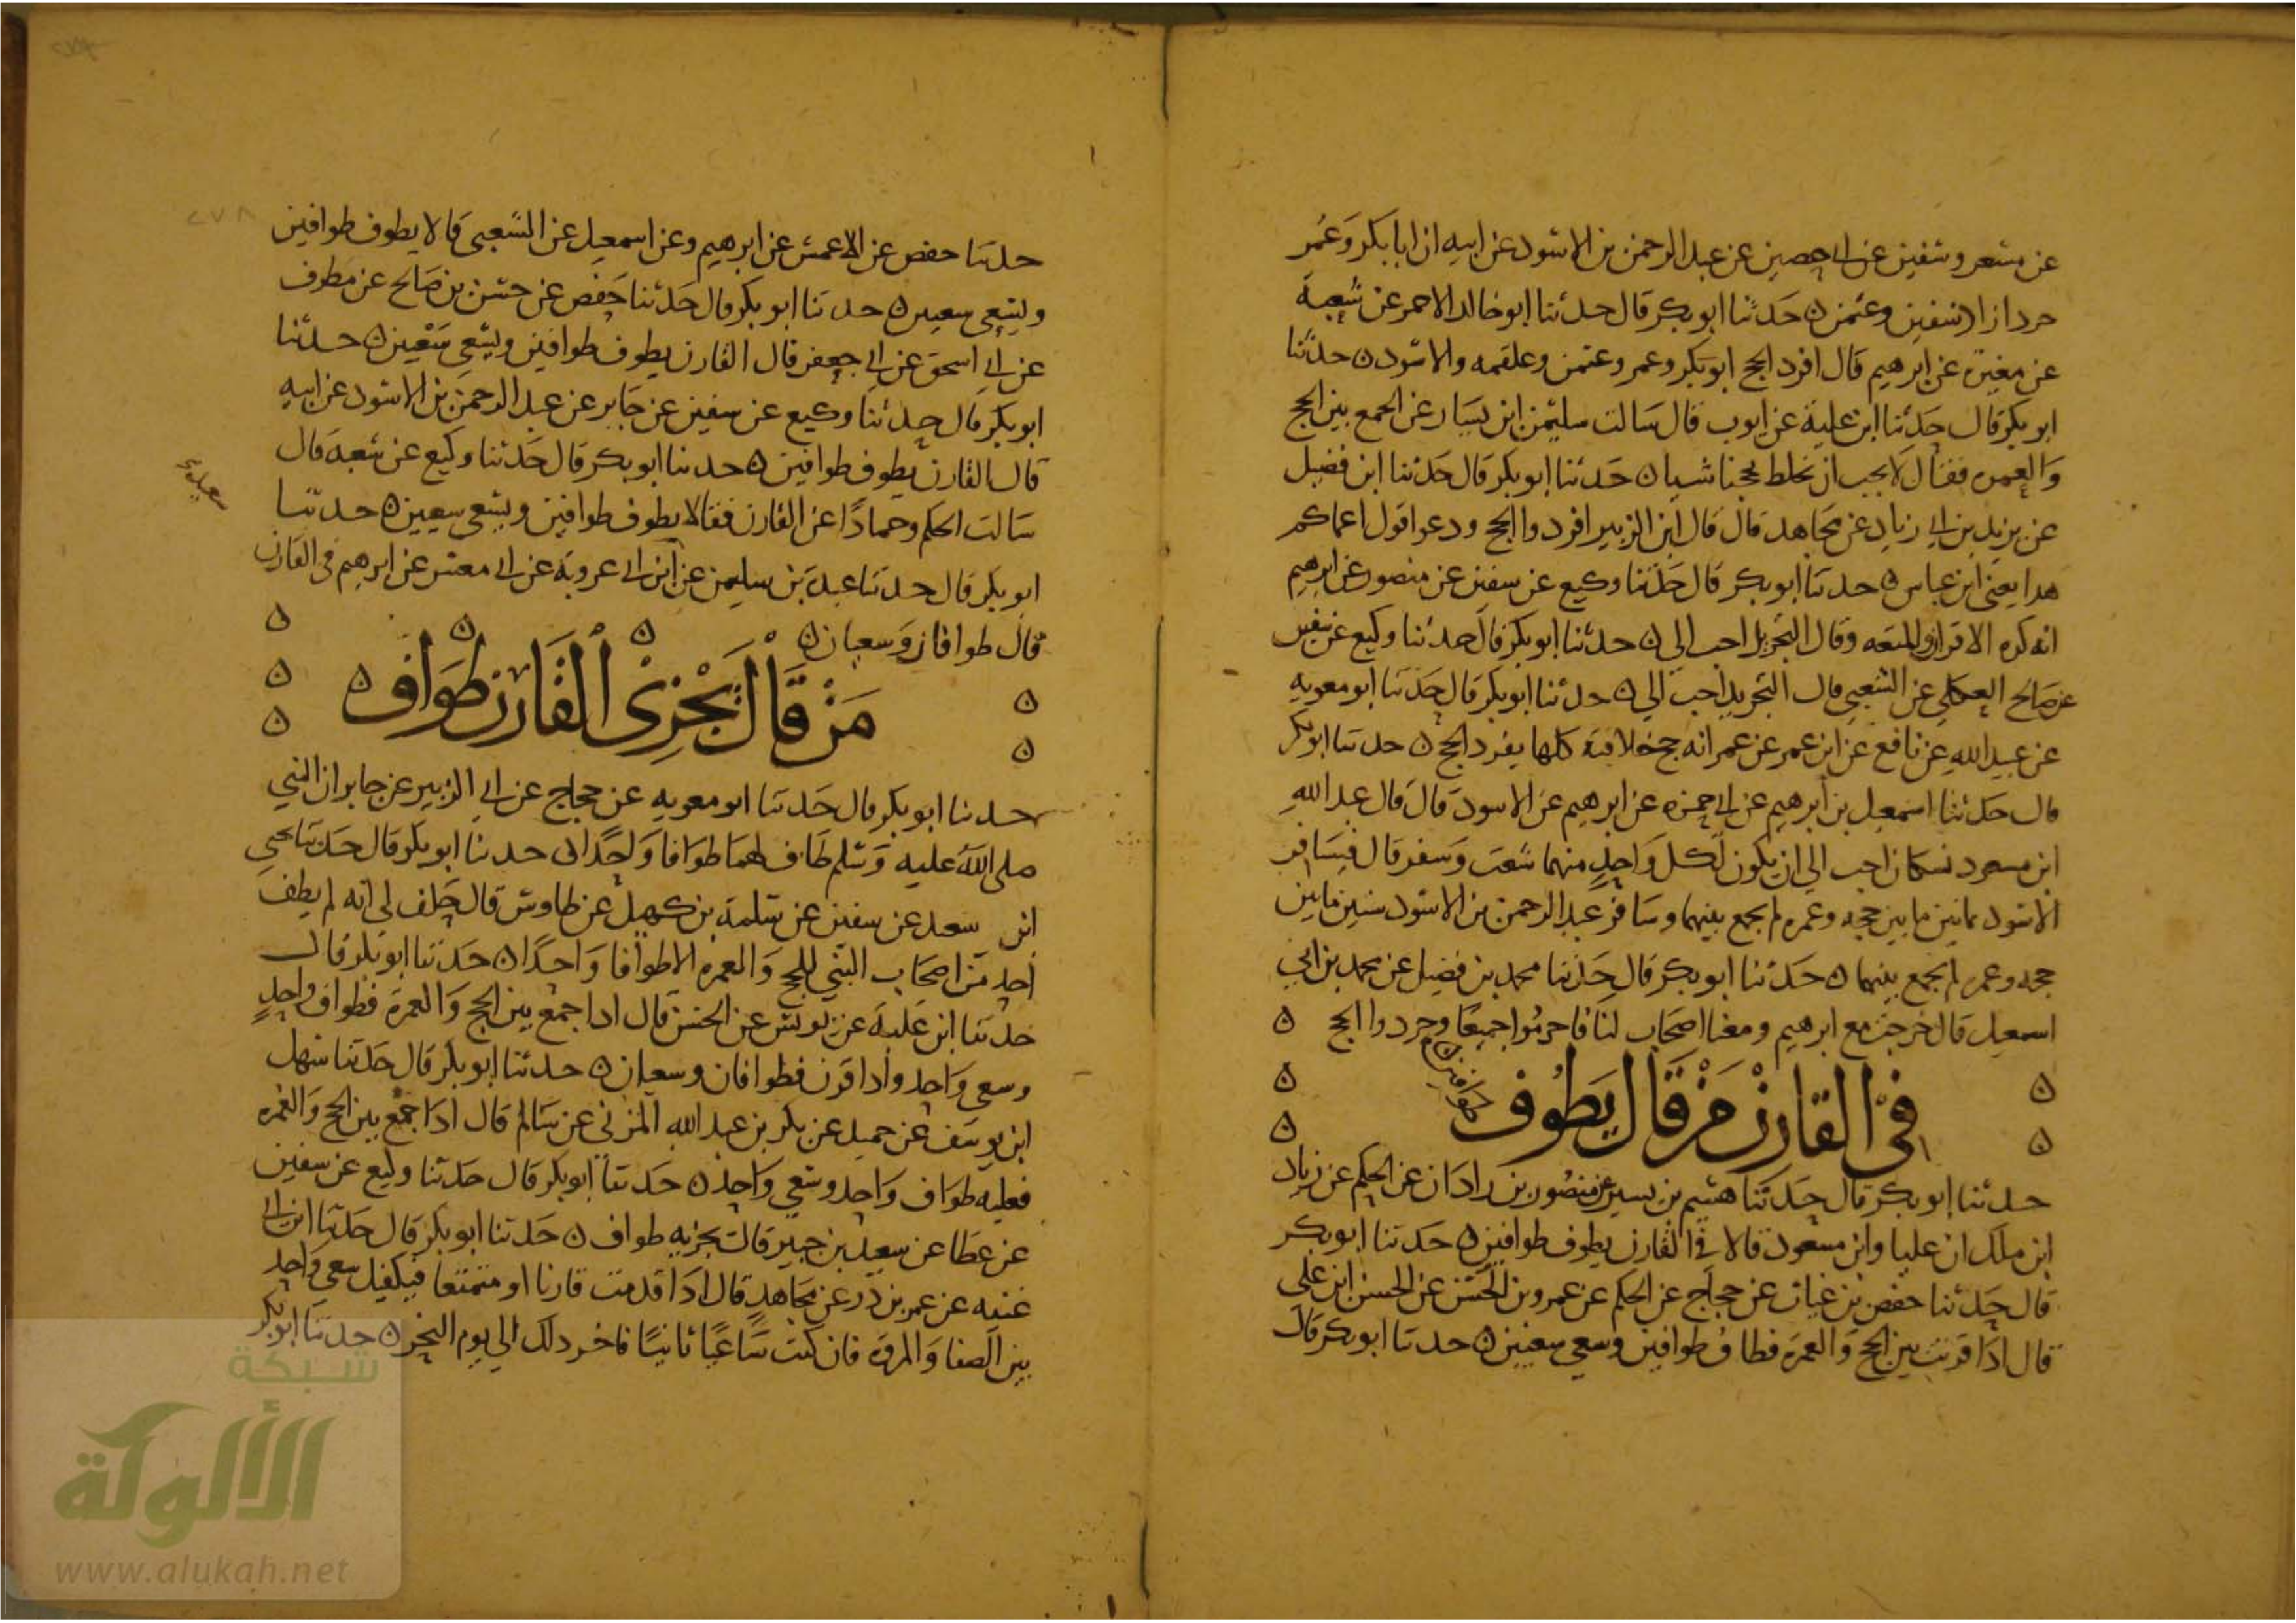 عن مسعر وسفين عن ابي حصين عن عبد الرحمن بن الاسود عن ابيه ان ابا بكر وعمر
جردا زاد سفين وعثمن ه حدثنا ابو بكر قال حدثنا ابو خالد الاحمر عن شعبة
عن مغيرة عن ابرهيم قال افرد الحج ابو بكر وعمر وعثمن وعلقمه والاسود ه حدثنا
ابو بكر قال حدثنا ابن علية عن ايوب قال سالت سليمن ابن يسار عن الجمع بين الحج
والعمره فقال لا يجب ان نخلط بحجنا شيا ه حدثنا ابو بكر قال حدثنا ابن فضيل
عن يزيد بن ابي زياد عن مجاهد قال قال ابن الزبير افردوا الحج ودعوا قول اعماكم
هدا يعني ابن عباس ه حدثنا ابو بكر قال حدثنا وكيع عن سفين عن منصور عن ابرهيم
انه كره الاقران والمتعه وقال التجريد احب الي ه حدثنا ابو بكر قال حدثنا وكيع عن سفين
عن صالح العكلي عن الشعبي قال التجريد احب الي ه حدثنا ابو بكر قال حدثنا ابو معويه
عن عبيد الله عن نافع عن ابن عمر عن عمر انه حج خلافته كلها يفرد الحج ه حدثنا ابو بكر
قال حدثنا اسمعيل بن ابرهيم عن ابي حمزه عن ابرهيم عن الاسود قال قال عبد الله
ابن مسعود نسكان احب الي ان يكون لكل واحد منهما شعث وسفر قال فسافر
الاسود ثمانين ما بين حجه وعمره لم يجمع بينهما وسافر عبد الرحمن بن الاسود ستين ما بين
حجه وعمره لم يجمع بينهما ه حدثنا ابو بكر قال حدثنا محمد بن فضيل عن محمد بن ابي
اسمعيل قال خرجت مع ابرهيم ومعنا اصحاب لنا فاحرموا جميعا وجردوا الحج ه
في القارن من قال يطوف طوافين
حدثنا ابو بكر قال حدثنا هشيم بن بسير عن منصور بن زادان عن الحكم عن زياد
ابن ملك ان عليا وابن مسعود قالا في القارن يطوف طوافين ه حدثنا ابو بكر
قال حدثنا حفص بن غياث عن حجاج عن الحكم عن عمرو بن الحسن عن الحسن ابن علي
قال ادا قرنت بين الحج والعمرة فطاف طوافين وسعي سعيين ه حدثنا ابو بكر قال
٢٧٨
حدثنا حفص عن الاعمش عن ابرهيم وعن اسمعيل عن الشعبي قالا يطوف طوافين
ويسعي سعيين ه حدثنا ابو بكر قال حدثنا حفص عن حسن بن صالح عن مطرف
عن ابي اسحق عن ابي جعفر قال القارن يطوف طوافين ويسعي سعيين ه حدثنا
ابو بكر قال حدثنا وكيع عن سفين عن جابر عن عبد الرحمن بن الاسود عن ابيه
قال القارن يطوف طوافين ه حدثنا ابو بكر قال حدثنا وكيع عن شعبة قال
سالت الحكم وحمادا عن القارن فقالا يطوف طوافين ويسعي سعيين ه حدثنا
ابو بكر قال حدثنا عبدة بن سليمن عن ابن ابي عروبة عن ابي معشر عن ابرهيم في القارن
قال طوافان وسعيان ه
من قال يجزي القارن طواف ه
حدثنا ابو بكر قال حدثنا ابو معويه عن حجاج عن ابي الزبير عن جابر ان النبي
صلى الله عليه وسلم طاف لهما طوافا واحدا ه حدثنا ابو بكر قال حدثنا يحيى
ابن سعد عن سفين عن سلمة بن كهيل عن طاوس قال حلف لي انه لم يطف
احد من اصحاب النبي للحج والعمره الا طوافا واحدا ه حدثنا ابو بكر قال
حدثنا ابن علية عن يونس عن الحسن قال ادا جمع بين الحج والعمرة فطواف واحد
وسعي واحد وادا قرن فطوافان وسعيان ه حدثنا ابو بكر قال حدثنا سهل
ابن يوسف عن حميد عن بكر بن عبد الله المزني عن سالم قال ادا جمع بين الحج والعمره
فعليه طواف واحد وسعي واحد ه حدثنا ابو بكر قال حدثنا وكيع عن سفين
عن عطا عن سعيد بن جبير قالت يجزيه طواف ه حدثنا ابو بكر قال حدثنا ابن ابي
غنيه عن عمر بن در عن مجاهد قال ادا قدمت قارنا او متمتعا فيكفيك سعي واحد
بين الصفا والمروة فان كنت ساعيا ثانيا فاخر دلك الي يوم النحر ه حدثنا ابو بكر
شبكة
الألوكة
www.alukah.net